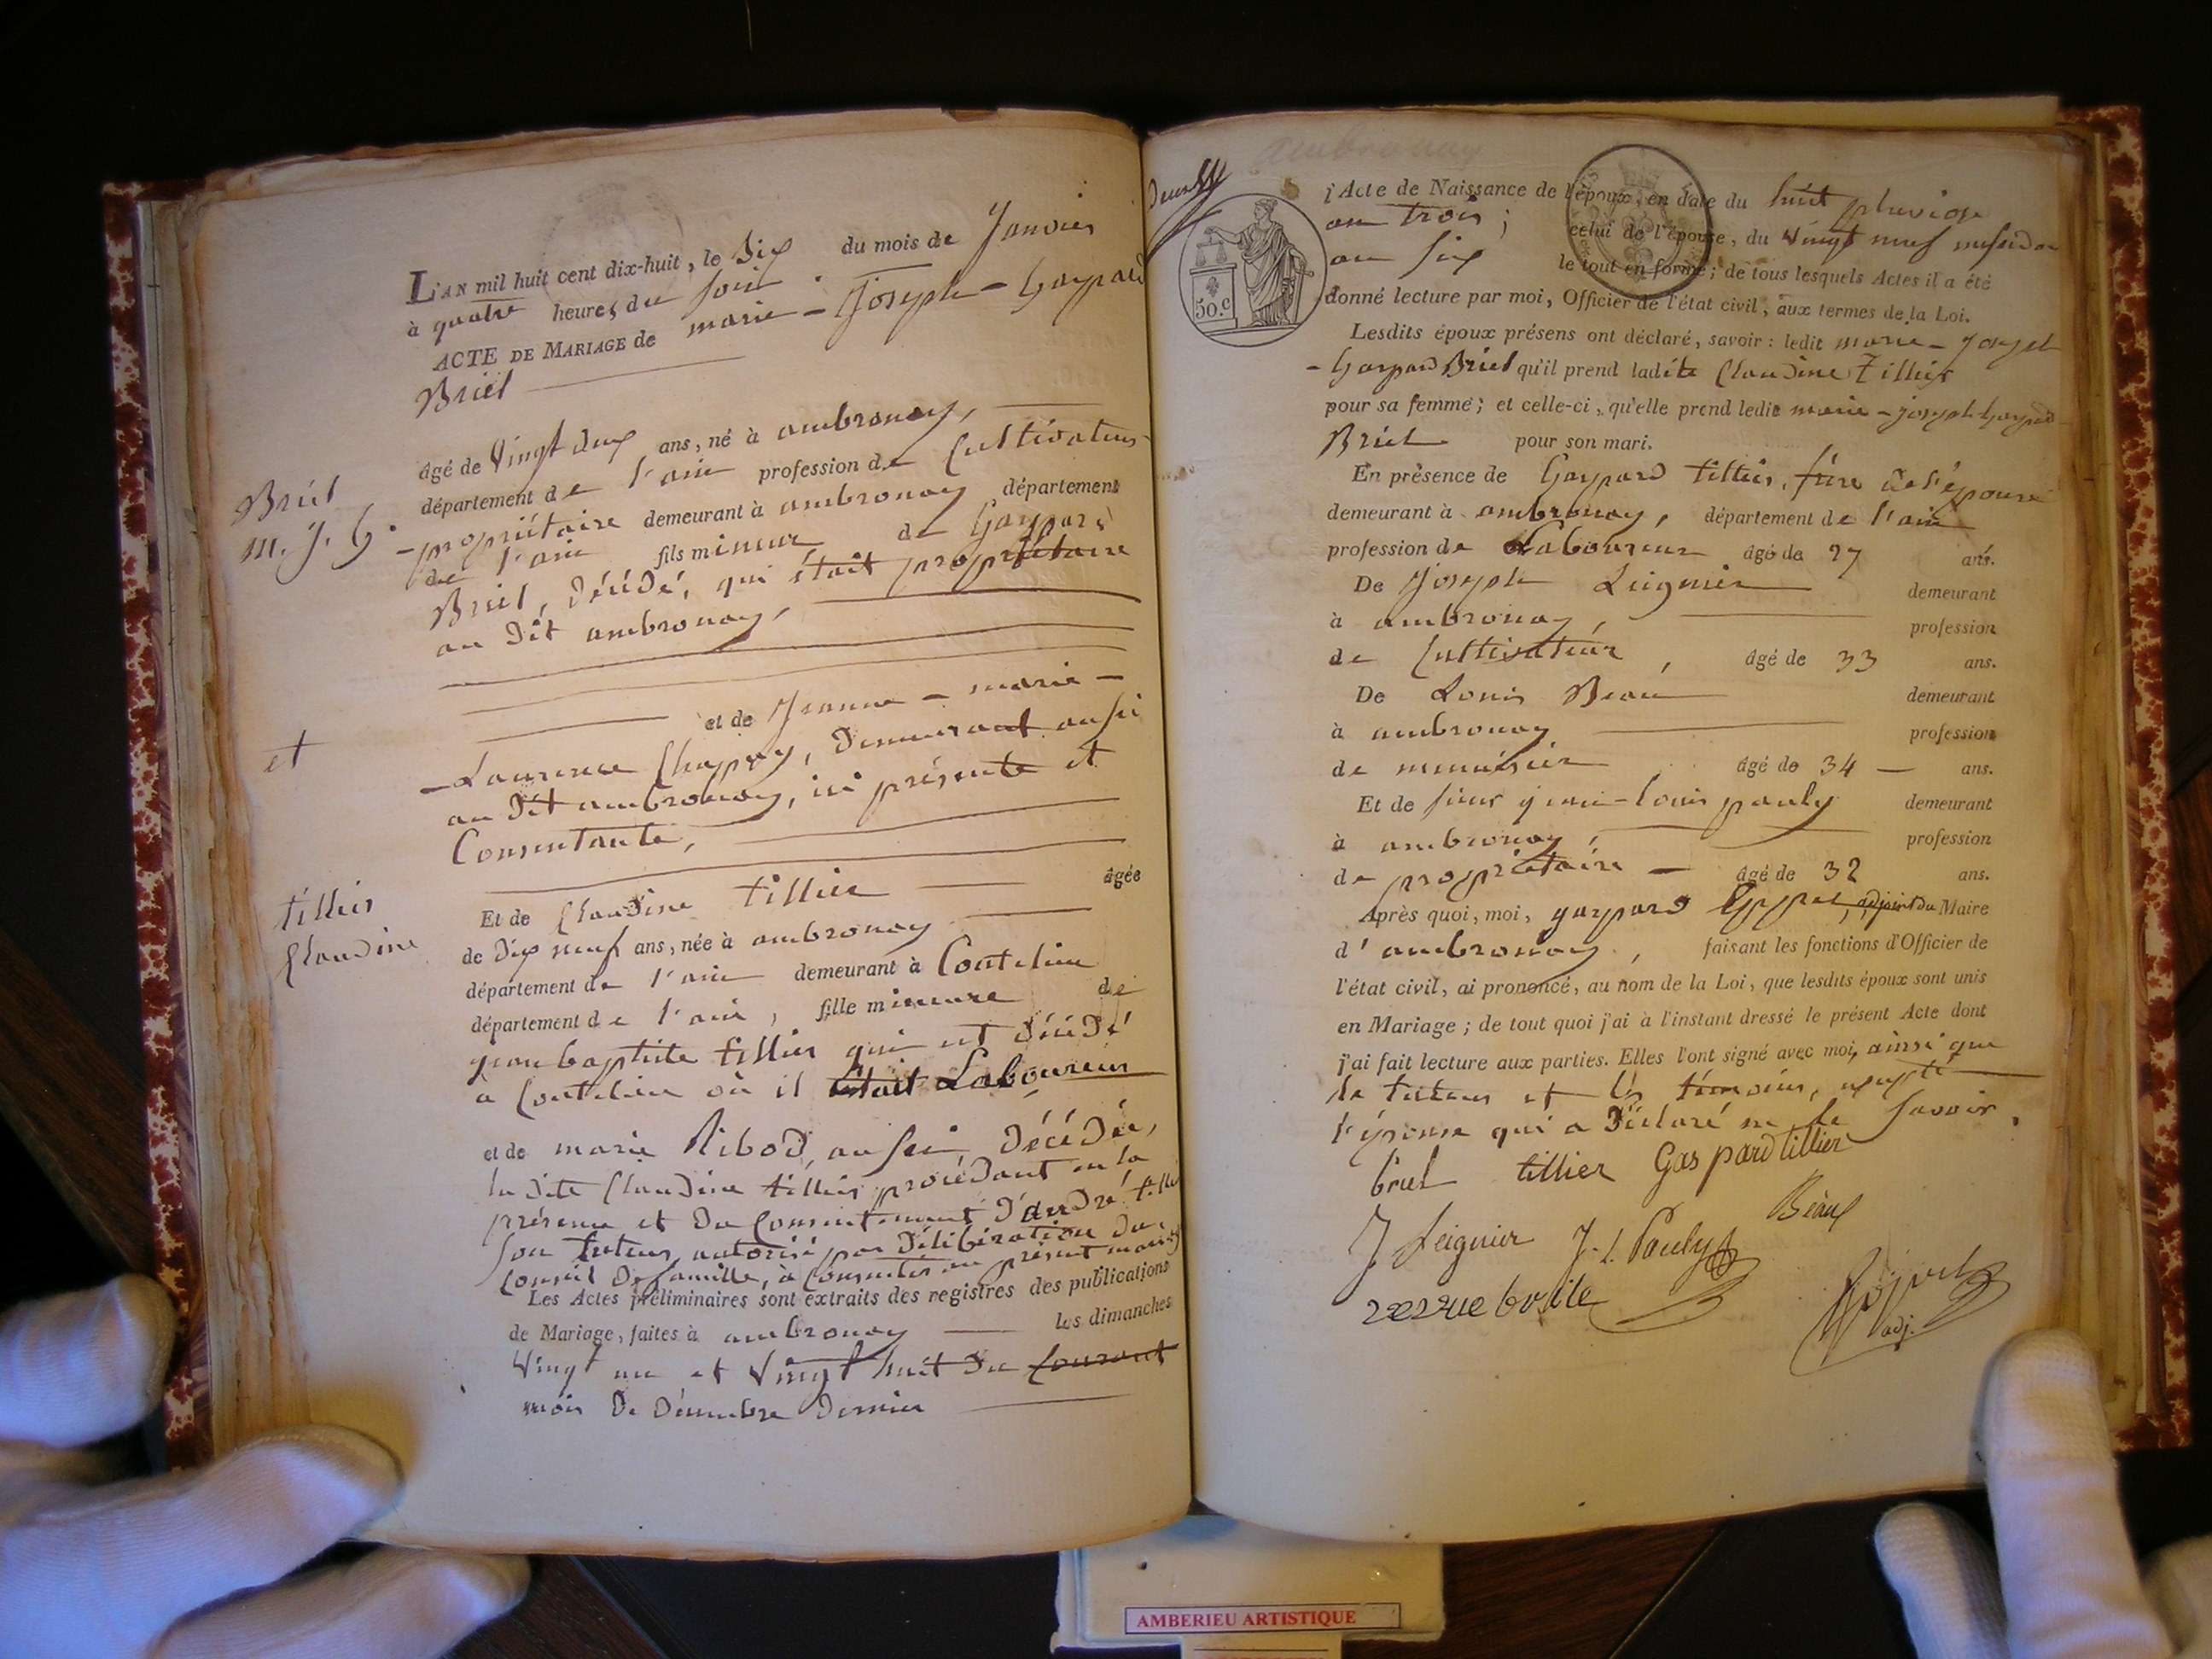 L'AN mil huit cent dix-huit, le Dix du mois de Janvier
à quatre heures du soir
ACTE DE MARIAGE de marie - Joseph - Gaspard
Briel
âgé de Vingt deux ans, né à ambronay,
département de l'ain profession de Cultivateur
Briel
M. J. G.
-propriétaire demeurant à ambronay département
de l'ain fils mineur de Gaspard
Briel, décédé, qui était propriétaire
au dit ambronay,
et de Jeanne - marie -
et
-Laurence Chapuy, demeurant aussi
au dit ambronay, ici présente et
Consentante,
tillier
Claudine
Et de Claudine tillier âgée
de dix neuf ans, née à ambronay
département de l'ain demeurant à Coutelieu
département de l'ain, fille mineure de
jean baptiste tillier qui est décédé
à Coutelieu où il était Laboureur
et de marie Ribod, aussi décédée,
la dite Claudine tillier procédant en la
présence et du Consentement d'andré tillier
son tuteur, autorisé par délibération du
Conseil de famille, à Consentir au présent mariage
Les Actes préliminaires sont extraits des registres des publications
de Mariage, faites à ambronay les dimanches
Vingt un et Vingt huit du Courant
mois de décembre dernier
ambronay
l'Acte de Naissance de l'époux, en date du huit pluviose
an trois; celui de l'épouse, du Vingt neuf messidor
an six le tout en forme; de tous lesquels Actes il a été
50.c
donné lecture par moi, Officier de l'état civil, aux termes de la Loi.
Lesdits époux présens ont déclaré, savoir: ledit marie - Joseph
- Gaspard Briel qu'il prend ladite Claudine Tillier
pour sa femme; et celle-ci, qu'elle prend ledit marie - joseph-Gaspard
Briel pour son mari.
En présence de Gaspard tillier, frère de l'épouse
demeurant à ambronay, département de l'ain
profession de Laboureur âgé de 27 ans.
De Joseph Leignier demeurant
à ambronay, profession
de Cultivateur, âgé de 33 ans.
De Louis Beau demeurant
à ambronay profession
de menuisier âgé de 34 — ans.
Et de sieur jean-louis pauly demeurant
à ambronay, profession
de propriétaire — âgé de 32 ans.
Après quoi, moi, gaspard adjoint du Maire
d'ambronay, faisant les fonctions d'Officier de
l'état civil, ai prononcé, au nom de la Loi, que lesdits époux sont unis
en Mariage; de tout quoi j'ai à l'instant dressé le présent Acte dont
j'ai fait lecture aux parties. Elles l'ont signé avec moi, ainsi que
le tuteur et les témoins, excepté
l'épouse qui a déclaré ne le savoir.
briel tillier Gaspard tillier
J Leignier J. L. Pauly Béaux
adj.
AMBERIEU ARTISTIQUE